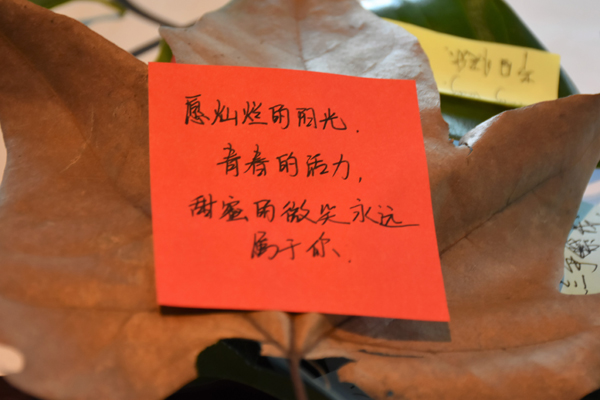 愿灿烂的阳光.
青春的活力,
甜蜜的微笑永远
属于你.